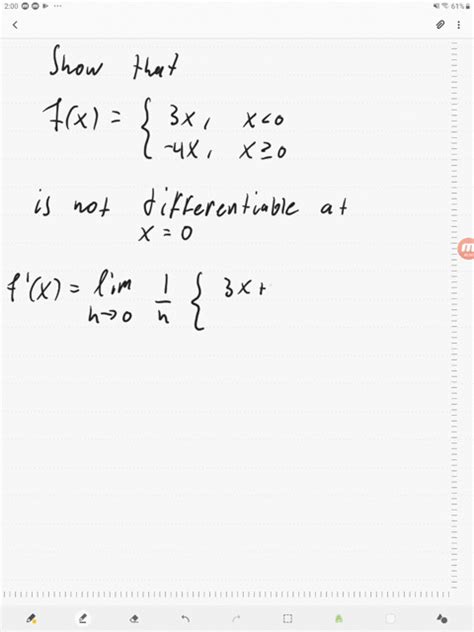 2:00
61%
Show that
f(x) = { 3x, x<0
-4x, x≥0
is not differentiable at
x = 0
f'(x) = lim 1/h { 3x +
h→0